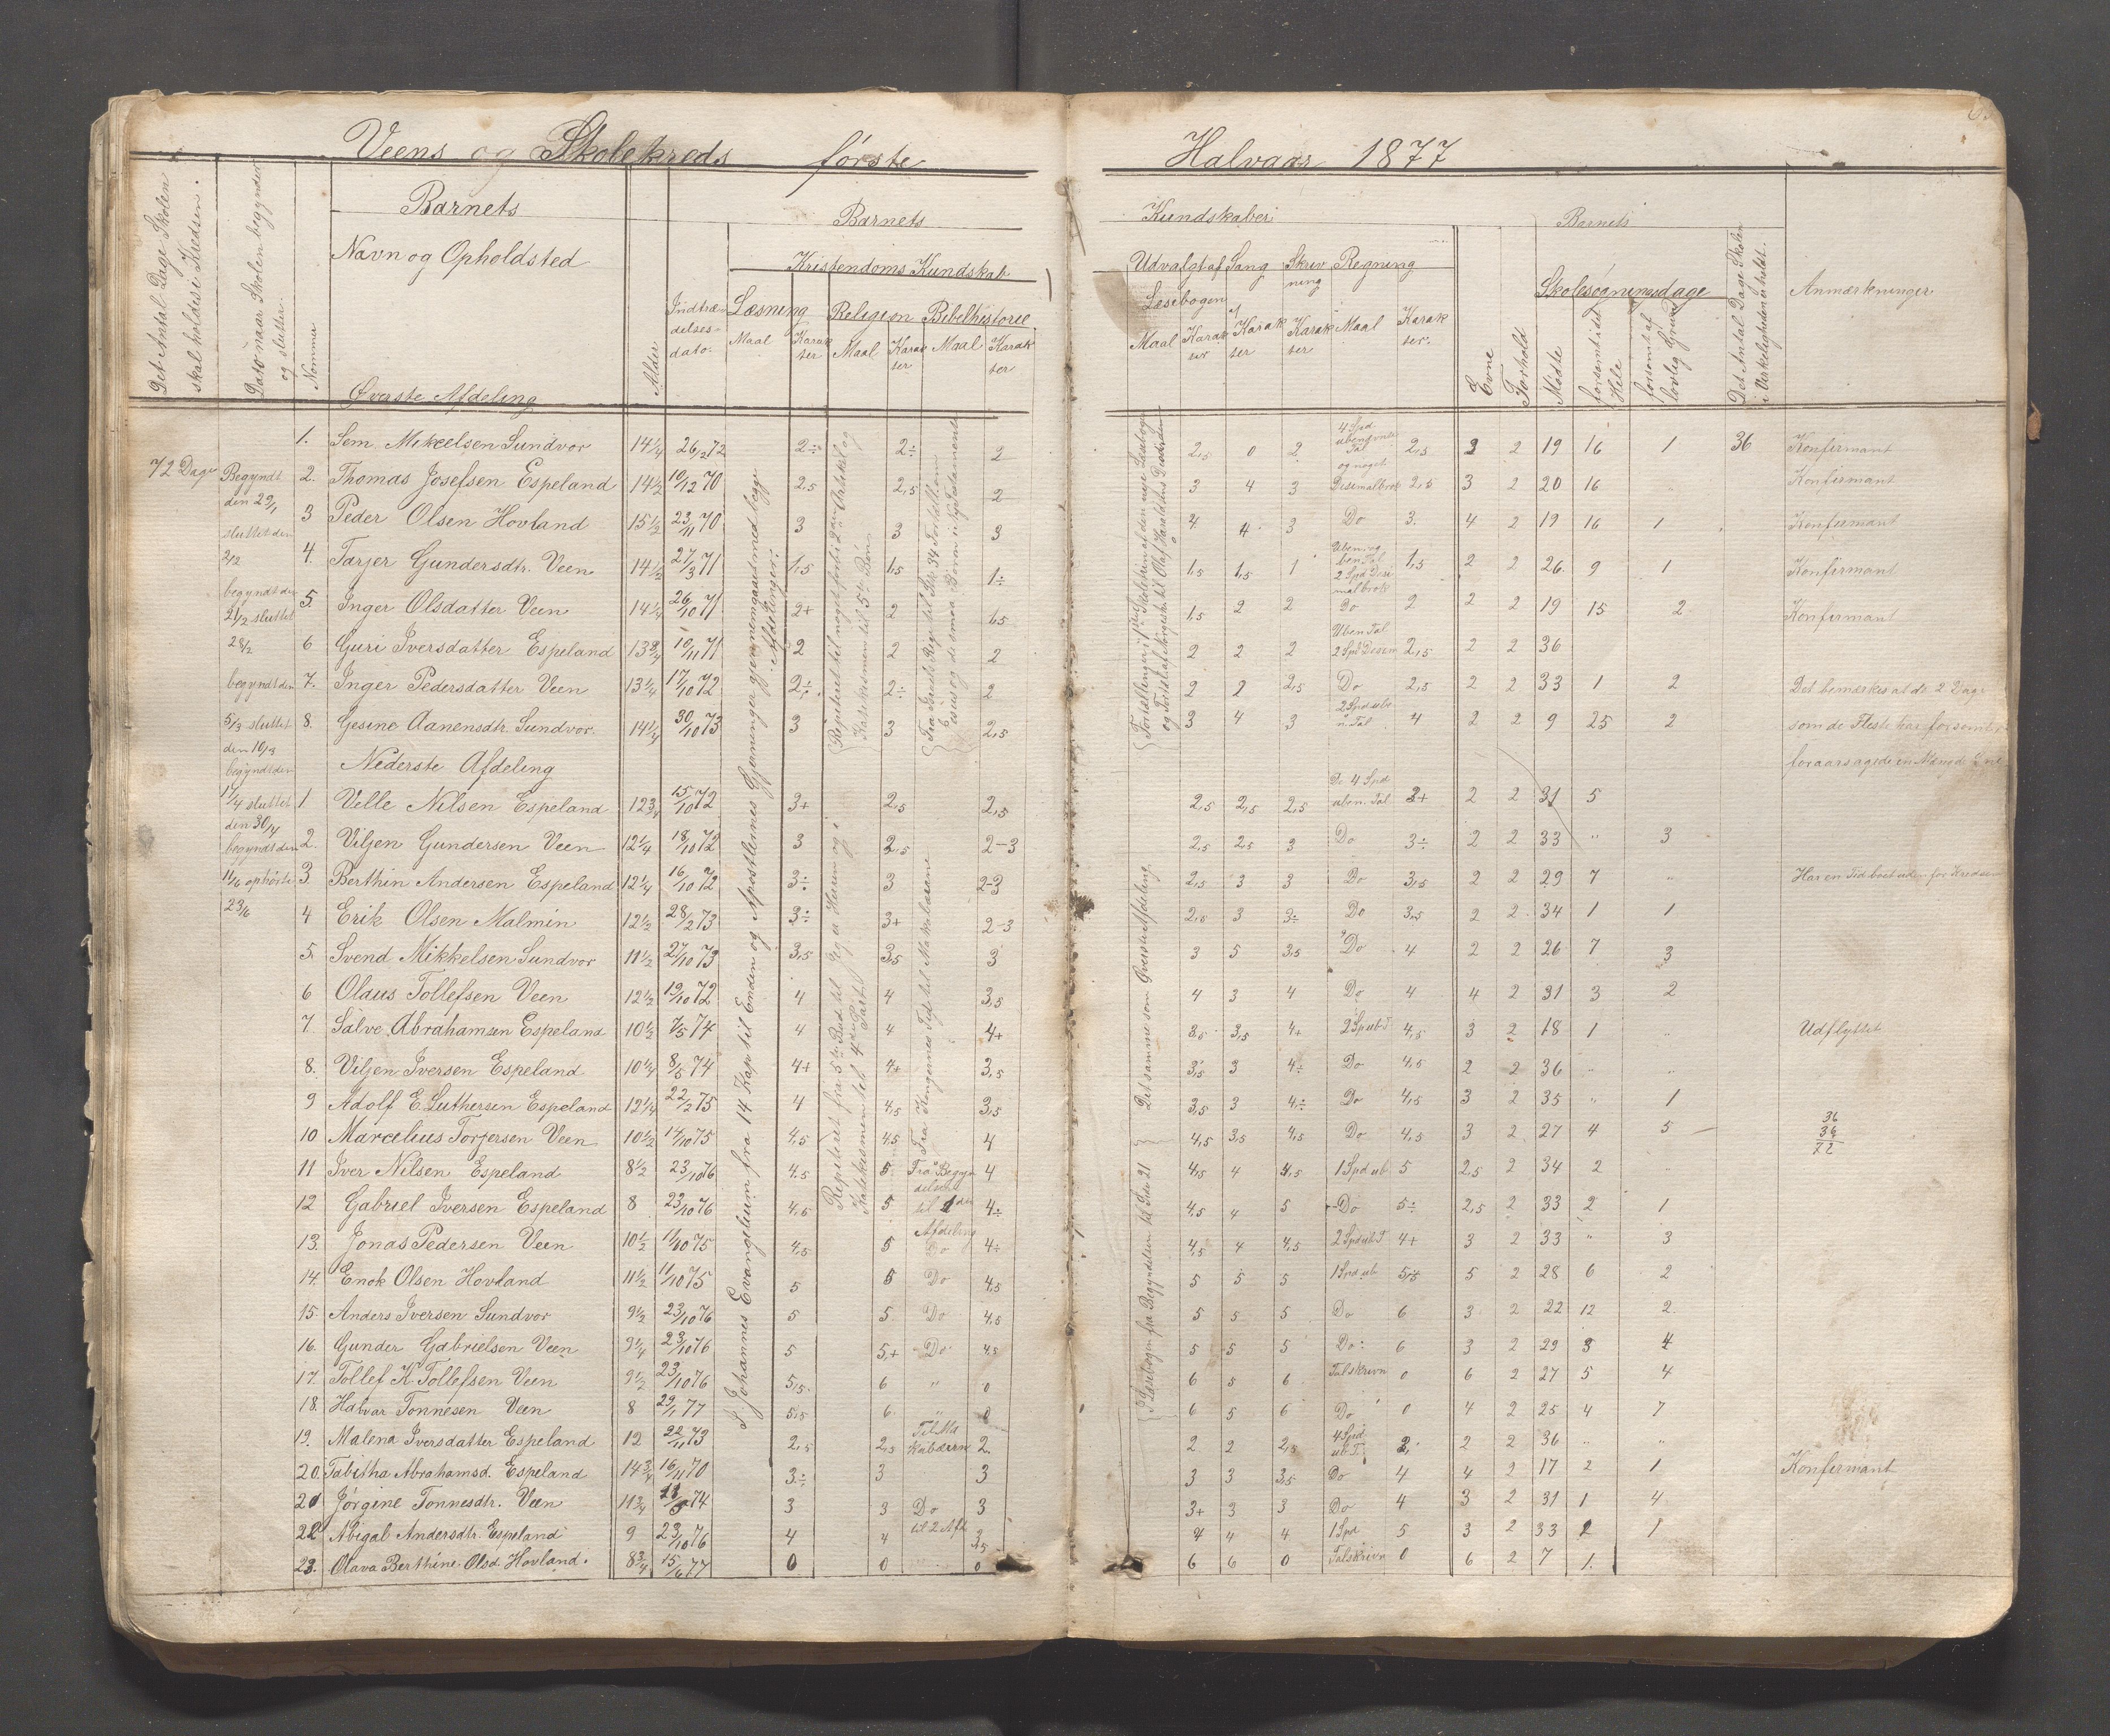 Veens og Skolekreds første Halvaar 1877
Det Antal Dage Skolen skal holdes i Kredsen.
Dato naar Skolen begynder og slutter.
Nommer
Barnets
Navn og Opholdsted
Øverste Afdeling
Alder
Indtrædelsesdato.
Barnets Kundskaber
Kristendoms Kundskab
Læsning Religion Bibelhistorie
Maal Karakter Maal Karakter Maal Karakter
Udvalgt af Læsebogen Sang Skrivning Regning
Maal Karakter Karakter Karakter Maal Karakter.
Evne
Forhold
Barnets
Skolesøgningsdage
Mødte
forsømt i det Hele
forsømt af lovlig Grund
Det Antal Dage Skolen i Virkeligheden er holdt.
Anmærkninger
72 Dage
Begyndt den 29/1
sluttet den 2/2
begyndt den 21/2 sluttet 28/2
begyndt den 5/3 sluttet den 10/3
begyndt den 17/4 sluttet den 30/4
begyndt den 11/6 ophørte 23/6
1. Sem. Mikeelsen Sundvor 14 1/4 26/2 72 2÷ 2÷ 2 2,5 0 2 2,5 2 2 19 16 1 36 Konfirmant
2. Thomas Josefsen Espeland 14 1/2 10/12 70 2,5 2,5 2 3 4 3 2,5 3 2 20 16 Konfirmant
3 Peder Olsen Hovland 15 1/2 23/11 70 3 3 3 4 4 3 Do 3. 4 2 19 16 1 Konfirmant
4. Tarjer Gundersdtr. Veen 14 1/2 27/3 71 1,5 1,5 1÷ 1,5 1,5 1 1,5 2 2 26 9 1 Konfirmant
5. Inger Olsdatter Veen 14 1/4 26/10 71 2+ 2 1,5 1,5 2 2 Do 2 2 2 19 15 2 Konfirmant
6 Guri Iversdatter Espeland 13 3/4 10/11 71 2 2 2 2 2 2 2,5 2 2 36
7. Inger Pedersdatter Veen 13 1/4 17/10 72 2÷ 2÷ 2 2 2 2,5 Do 2,5 2 2 33 1 2 Det bemærkes at de 2 Dage
8. Gesine Aanensdtr. Sundvor. 14 1/4 30/10 73 3 3 2,5 3 4 3 4 2 2 9 25 2 som de Fleste har forsømt
Nederste Afdeling
1. Velle Nilsen Espeland 12 3/4 15/10 72 3+ 2,5 2,5 2,5 2,5 2,5 2 2 31 5
2. Viljen Gundersen Veen 12 1/4 18/10 72 3 2,5 2-3 2,5 2,5 3 Do 3÷ 2 2 33 " 3
3. Berthin Andersen Espeland 12 1/4 16/10 72 3÷ 3 2-3 2,5 3 3 Do 3,5 2 2 29 7 " Har en Tid boet uden for Kredsen
4 Erik Olsen Malmin 12 1/2 28/2 73 3÷ 3+ 2-3 2,5 3 3÷ Do 3,5 2 2 34 1 1
5. Svend Mikkelsen Sundvor 11 1/2 27/10 73 3,5 3,5 3 3 5 3,5 Do 4 2 2 26 7 3
6 Olaus Tollefsen Veen 12 1/2 19/10 72 4 4 3,5 4 3 4 Do 4 4 2 31 3 2
7. Salve Abrahamsen Espeland 10 1/2 7/5 74 4 4 4+ 3,5 3,5 4+ 4,5 3 2 18 1 " Udflyttet
8. Viljen Iversen Espeland 10 1/4 8/5 74 4+ 4+ 3,5 3,5 3 4÷ Do 4,5 2 2 36 " "
9 Adolf E. Luthersen Espeland 12 1/4 22/2 75 4 4,5 3,5 3,5 3 4÷ Do 4,5 3 2 35 " 1
10 Marcelius Torjersen Veen 10 1/2 14/10 75 4,5 4,5 4 4,5 3,5 4,5 Do 4,5 3 2 27 4 5
36
36
72
11 Iver Nilsen Espeland 8 1/2 23/10 76 4,5 5 4 4,5 4 4,5 1 Spd ub 5 2,5 2 34 2
12 Gabriel Iversen Espeland 8 23/10 76 4,5 5 4÷ 4,5 4 5 Do 5÷ 2,5 2 33 2 1
13. Jonas Pedersen Veen 10 1/2 11/10 75 4,5 5 Do 4÷ 4,5 4 4,5 4+ 3 2 33 " 3
14. Enok Olsen Hovland 11 1/2 11/10 75 5 5 Do 4,5 5 5 5 1 Spd ub 5,5 5 2 28 6 2
15. Anders Iversen Sundvor 9 1/2 23/10 76 5 5 Do 4,5 5 5 5 Do 6 3 2 22 12 2
16. Gunder Gabrielsen Veen 9 1/4 23/10 76 5 5+ Do 4,5 5 5 5 Do 6 3 2 29 3 4
17. Tollef K. Tollefsen Veen 9 1/2 23/10 76 5,5 6 " 0 6 5 6 Talskrivn 0 6 2 27 5 4
18. Halvar Tonnesen Veen 8 29/1 77 5,5 6 " 0 6 5 6 Do 0 4 2 25 4 7
19. Malena Iversdatter Espeland 12 22/11 73 2,5 2,5 2 2 2 2,5 2 2 36 " "
20. Tabitha Abrahamsd. Espeland 14 3/4 16/11 70 3÷ 3 3 3 3 3,5 Do 4 4 2 17 2 1 Konfirmant
21 Jørgine Tonnesdtr. Veen 11 3/4 74 3 3 Do 3 3+ 3 3 Do 4 3 2 31 1 4
22 Abigal Andersdtr. Espeland 9 23/10 76 4 4 til 2 Afd 3,5 4 4 4 1 Spd 5 3 2 33 2 1
23. Olava Berthine Olsd. Hovland. 8 3/4 15/6 77 0 0 0 6 6 0 Talskrivn 0 6 2 7 1.
I Johannes Evangelium fra 14 Kap til Enden og Apostlernes Gjerninger gjennemgaaet med begge Afdelinger.
Det samme som Øverste Afdeling
I Læsebogen fra Begyndelsen til Side 21